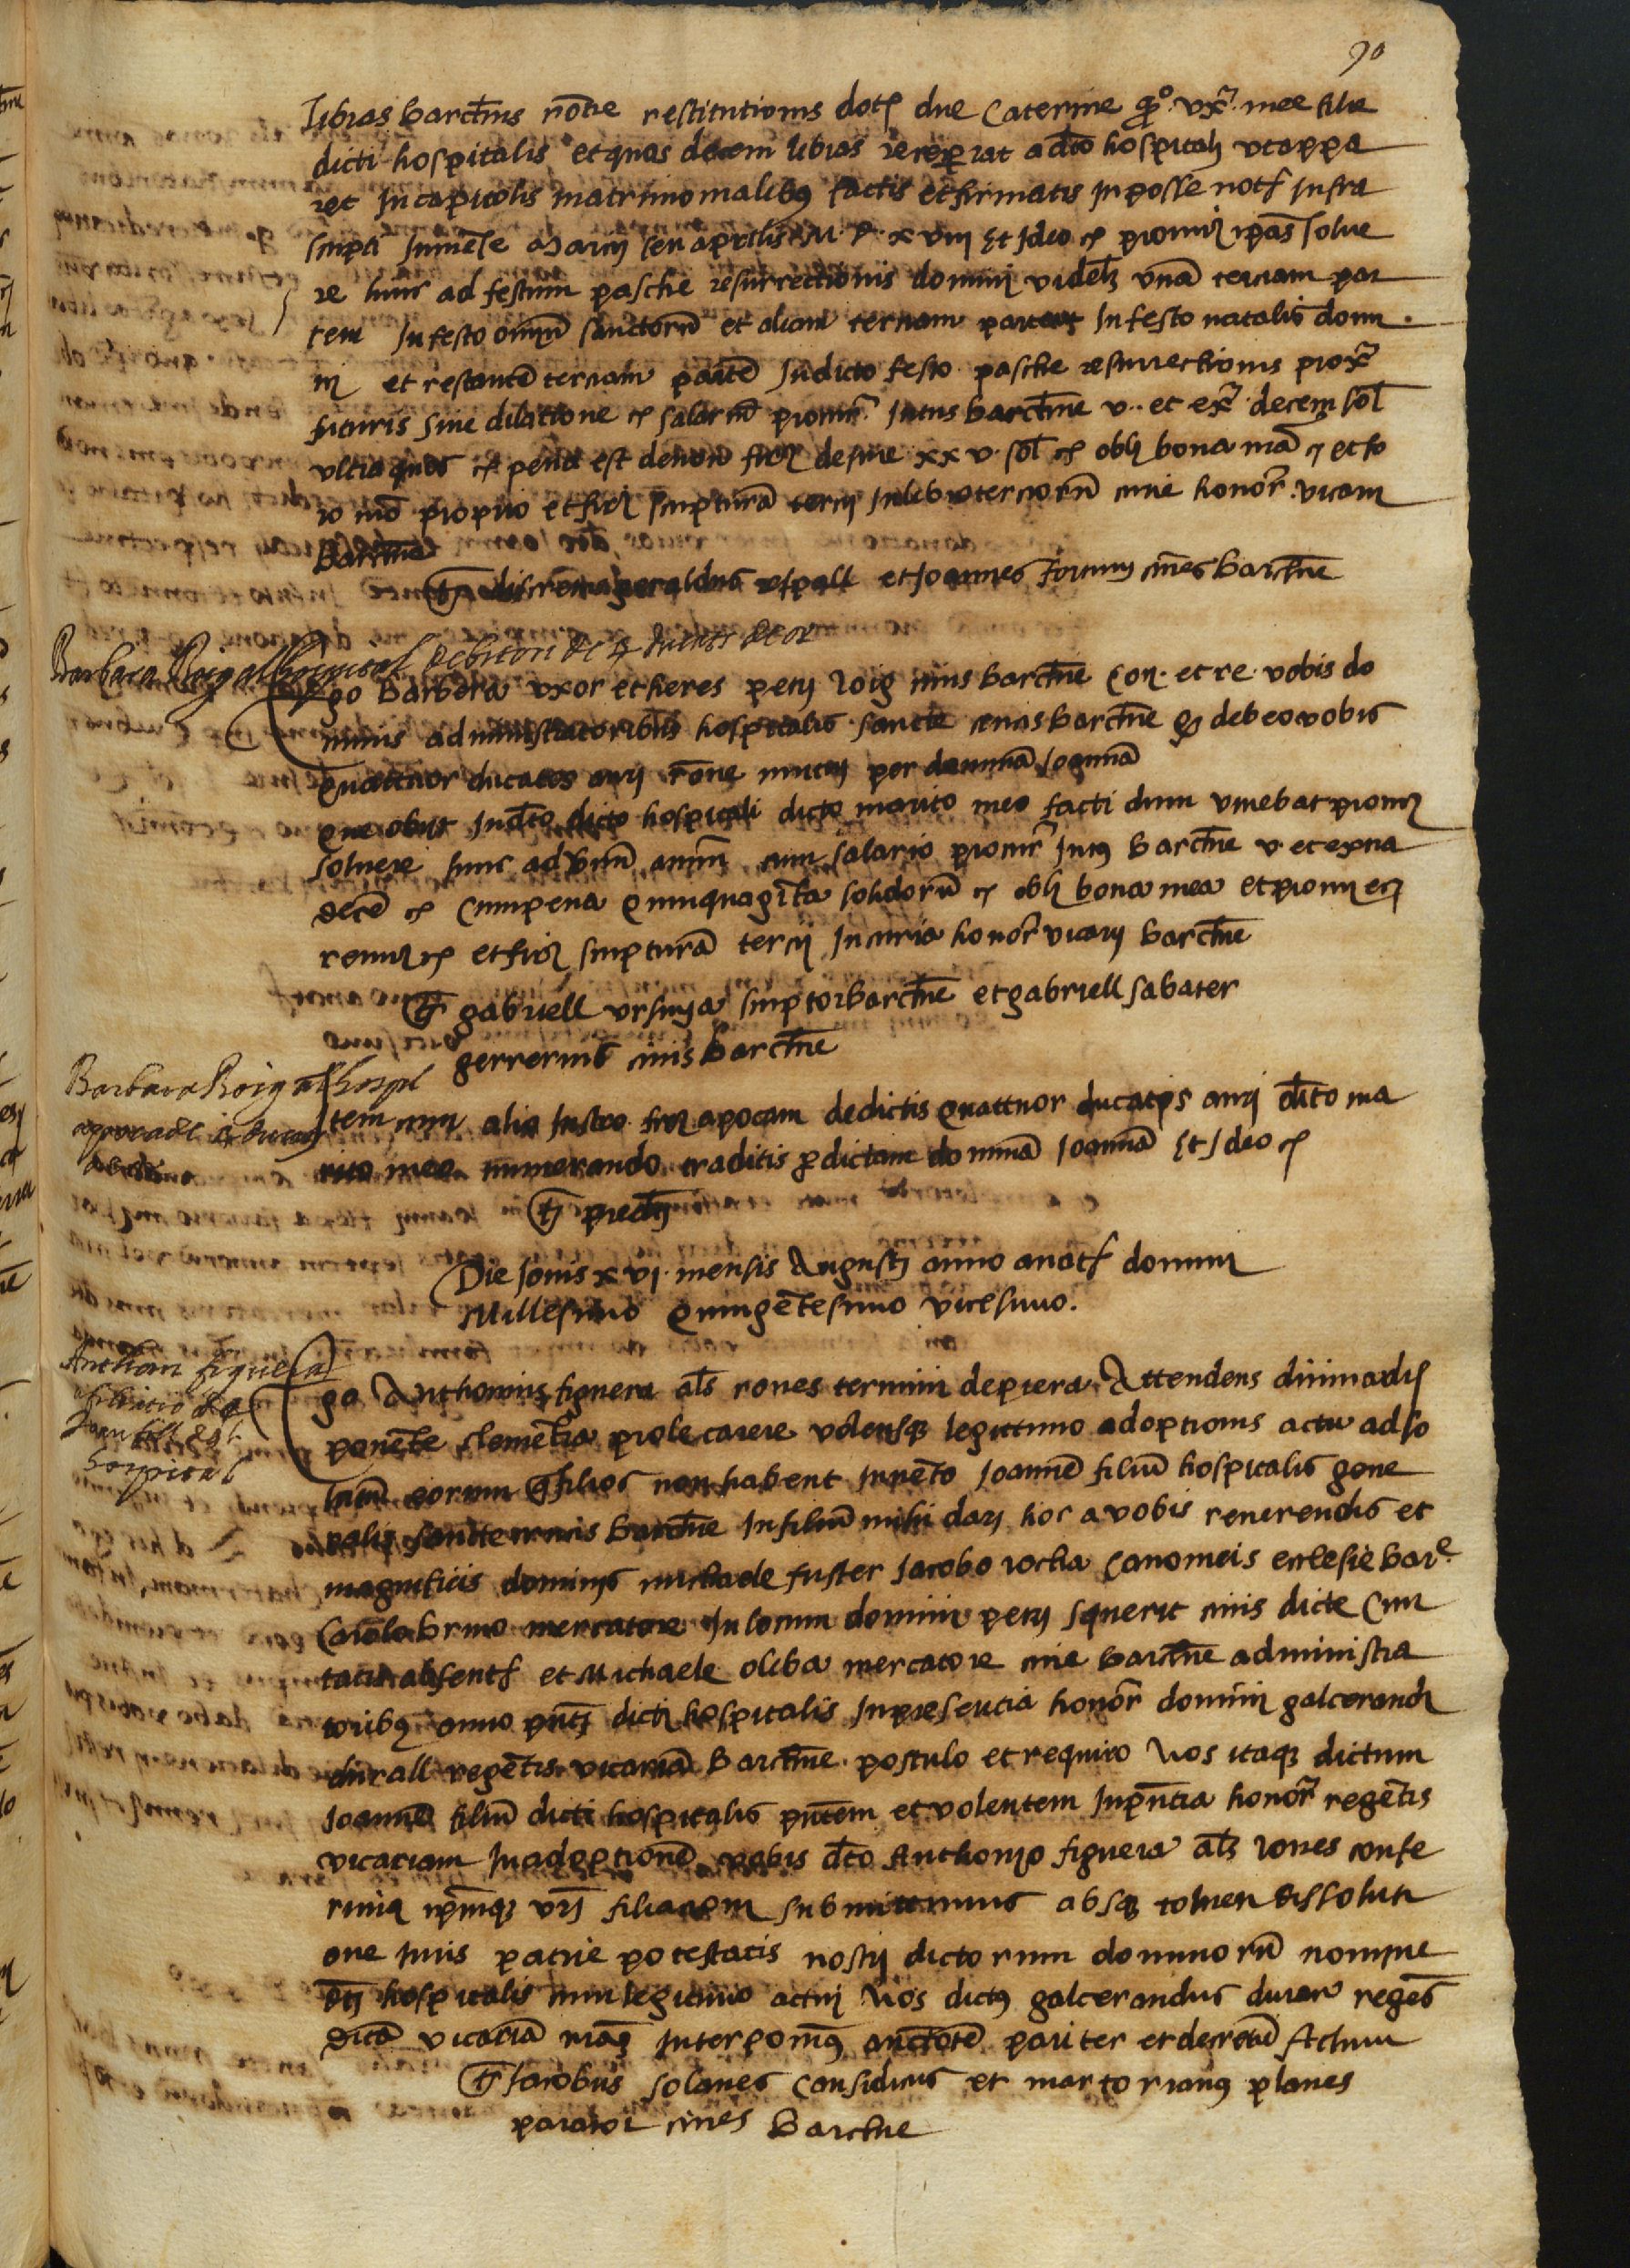 90
libras barchns rone restitutionis dotis dne Caterine qo uxor mee filie
dicti hospitalis et quas decem libras receperat a dco hospitali ut appa
ret in capitolis matrimonialibus factis et firmatis in posse not infra
scripti in mense marcij seu aprilis M D xviij Et Ideo promitto ipas solve
re hinc ad festum pasche resurrectionis domini videlt una terciam par
tem in festo omniu sanctoru et aliam terciam partem in festo natalis domi
ni et restante terciam parte in dicto festo pasche resurrectionis prox
futuris sine dilatione salariu procur intus barchne v et ex decem sol
ultra quos pena est de non firm de jure xxv sol obli bona mea et fo
ro meo proprio et firm scriptura tercij in libro tercioru curie honor vicarij
Barchne
Ts geraldus et Joannes cives barchne
Barbara Roig al hospital debitori de 4 ducats de or
Ego Barbara uxor et heres petri roig civis barchne con et re vobis do
minis administratoribus hospitalis sancte crucis barchne q debeo vobis
quattuor ducatos auri rone mutui per dominam Joanna
que obijt in dco dicto hospitali dicto marito meo facti dum vivebat promitto
solvere hinc ad unu annu cum salario procur intus barchne v et extra
dece Cum pena quinquaginta solidoru obli bona mea et promitto et
renun et firm scriptura tercij in curia honor vicarij barchne
Ts gabriell ursinya scriptor barchne et gabriell sabater
gerrerius civis barchne
Barbara Roig al hospl
apoca de 4 ducats
Item cum alio instro firm apocam de dictis quattuor ducatis auri dicto ma
rito meo numerando traditis p dictam domina Joanna Et Ideo
Ts predcti
Die Jovis xvj mensis Augusti anno a nat domini
Millesimo quingetesimo vicesimo.
Anthoni figuera
afiliacio de
Joan fill del
hospital
Ego Anthonius figuera als rones termini de piera Attendens divina dis
ponete clemetia prole carere volensq legittimo adoptionis actu ad so
latiu eorum q filios non habent invento Joanne filiu hospitalis gene
ralis sancte crucis barchne in filiu mihi dari hoc a vobis reverendis et
magnificis dominis michaele fuster Jacobo rocha Canonicis ecclesie bare
Carolo bruo mercatore in locum domini petri squerit civis dicte Civi
tatis absent et Michaele oliba mercatore cive barchne administra
toribus anno pnti dicti hospitalis in presentia honor domini galcerandi
durall regetis vicariam barchne postulo et requiro Nos itaq dictum
Joanne filiu dicti hospitalis pntem et volentem in pntia honor regetis
vicariam in adoptione vobis dco Anthonio figuera als rones confe
rimus ipmq vri filiacom submittimus absq tamen dissoluti
one juris patrie potestatis nostri dictorum dominoru nomine
dti hospitalis cum legittimo actui Nos dictus galcerandus durar reges
dicta vicaria nram interponimus auctote pariter et decretu Actum
Ts Jacobus solanes causidicus et martorianus planes
parator cives barchne